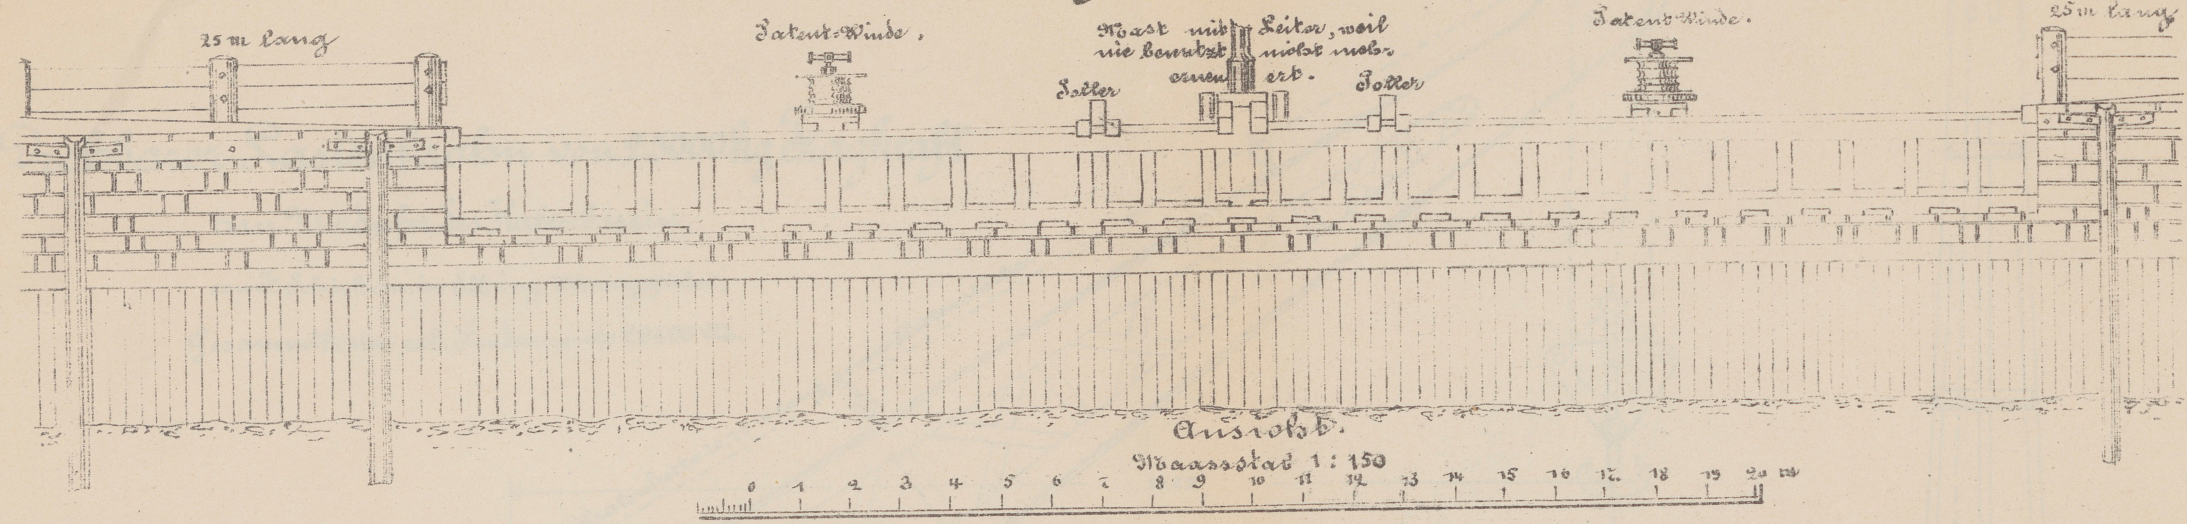 25 m lang
Patent-Winde.
Mast mit Leiter, weil
nie benutzt nicht mehr
erneuert.
Poller
Poller
Patent-Winde.
25 m lang
Ansicht.
Maassstab 1:150
0 1 2 3 4 5 6 7 8 9 10 11 12 13 14 15 16 17. 18 19 20 m